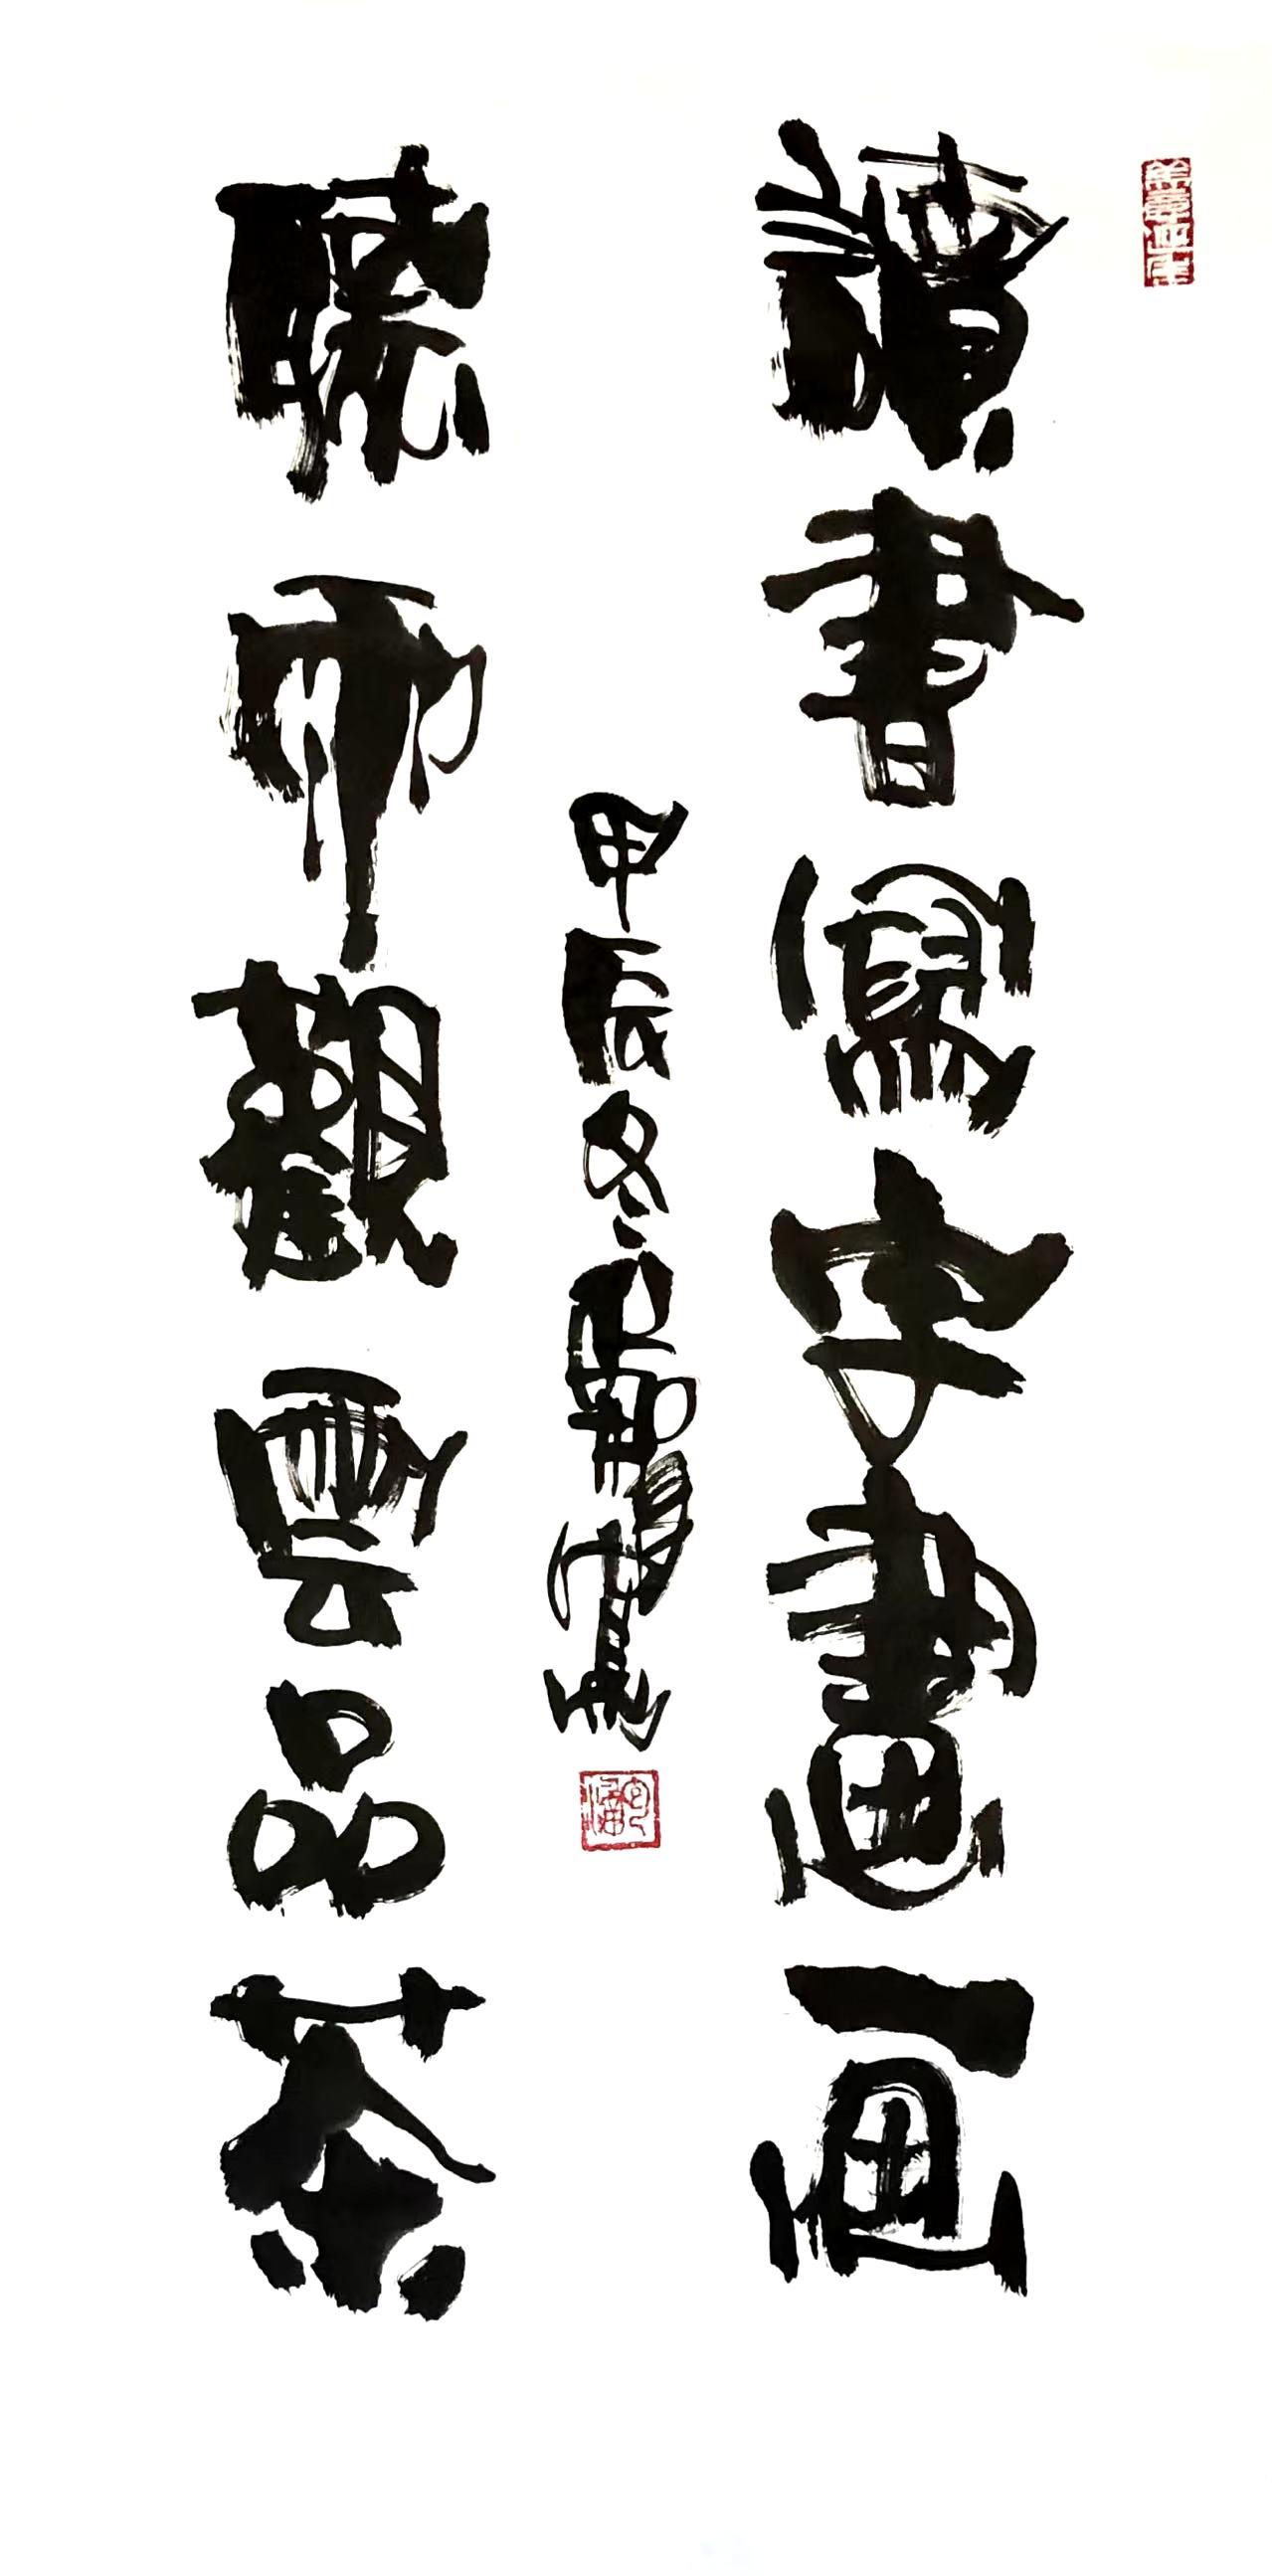 讀書寫字畫畫
聽雨觀雲品茶
甲辰冬